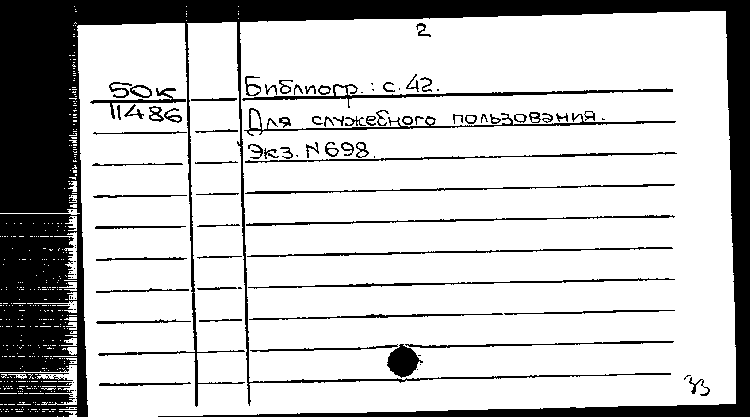 2
50К Библиогр.: с. 42.
11486 Для служебного пользования.
Экз. N 698.
33